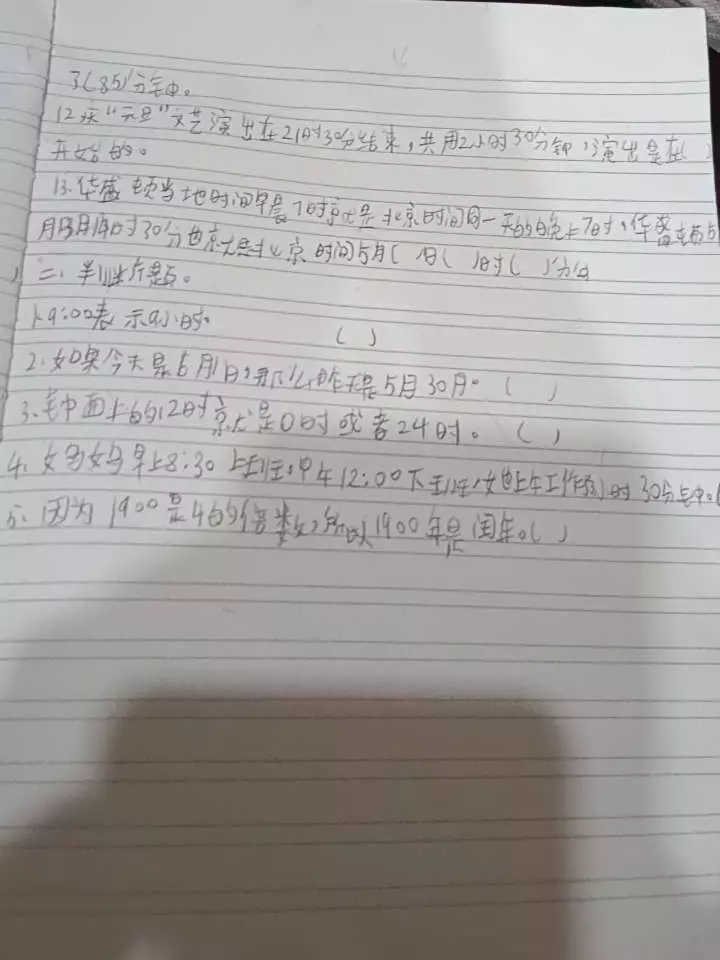 3(85)分钟。
12.庆"元旦"文艺演出在21时30分结束,共用2小时30分钟,演出是在( )
开始的。
13.华盛顿当地时间早晨7时就是北京时间同一天的晚上7时,华盛顿5
月13月14时30分也就是北京时间5月( )日( )时( )分。
二、判断题。
1.9:00表示9小时。 ( )
2.如果今天是6月1日,那么昨天是5月30月。 ( )
3.钟面上的12时就是0时或者24时。 ( )
4.妈妈早上8:30上班,中午12:00下班,她上午工作 时30分钟。(
5.因为1900是4的倍数,所以1900年是闰年。( )